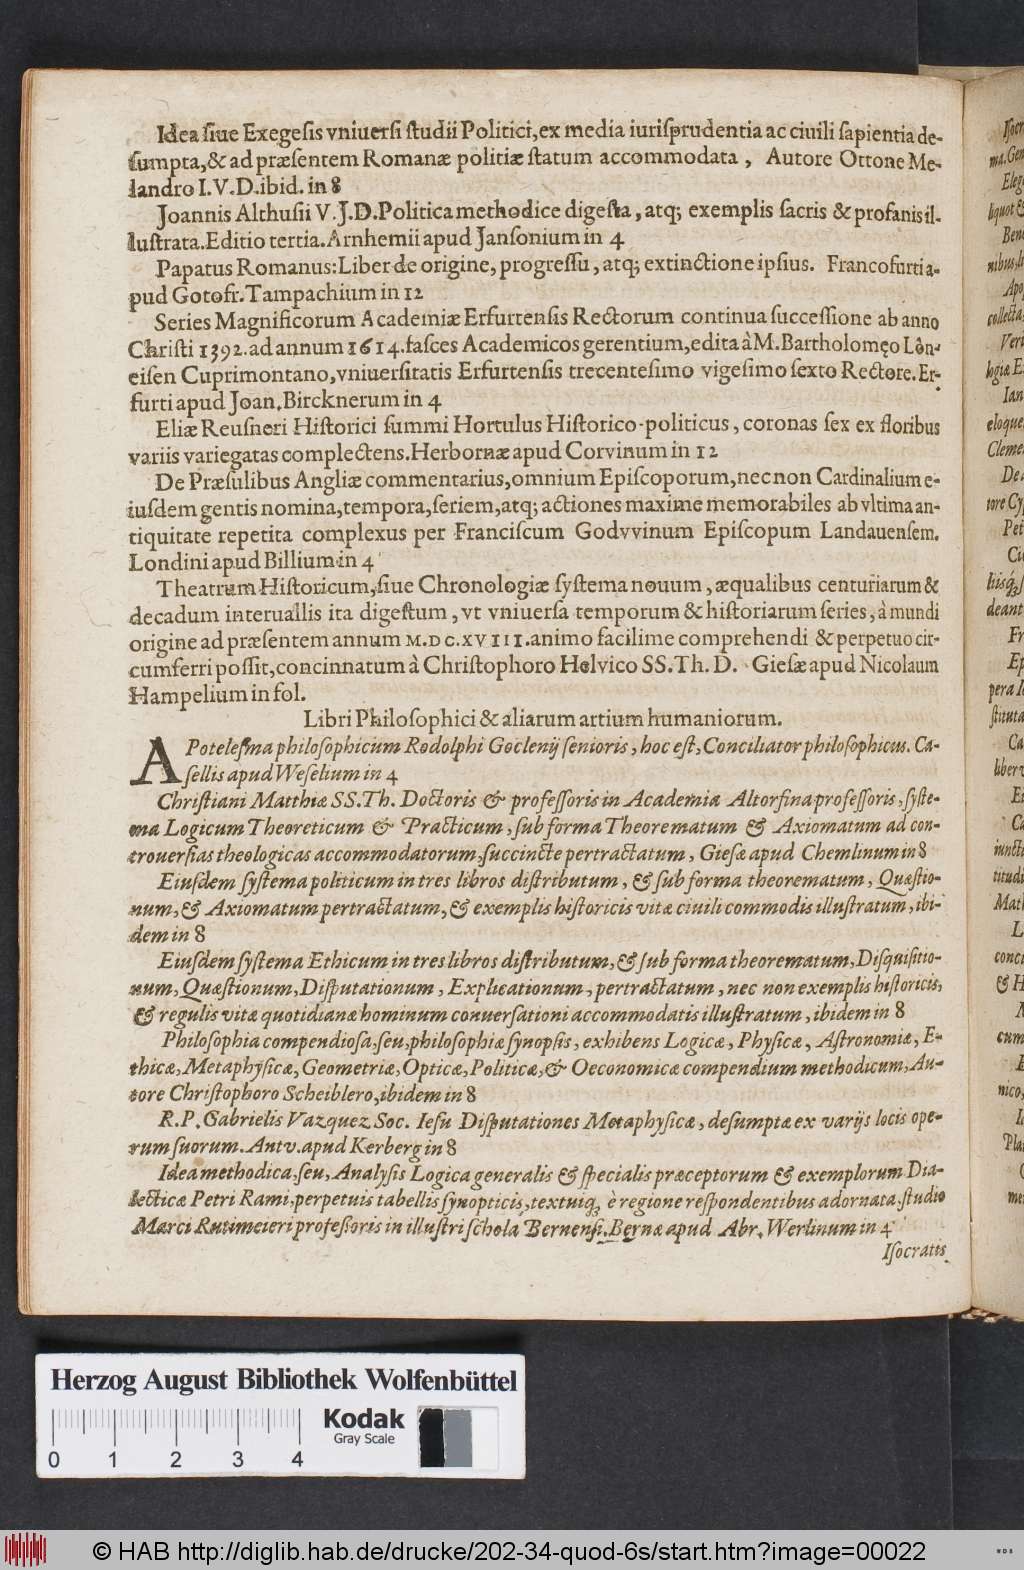 Idea siue Exegesis vniuersi studii Politici, ex media iurisprudentia ac ciuili sapientia de-
sumpta, & ad præsentem Romanæ politiæ statum accommodata, Autore Ottone Me-
landro I. V. D. ibid. in 8
Joannis Althusii V. J. D. Politica methodice digesta, atq; exemplis sacris & profanis il-
lustrata. Editio tertia. Arnhemii apud Jansonium in 4
Papatus Romanus: Liber de origine, progressu, atq; extinctione ipsius. Francofurti a-
pud Gotofr. Tampachium in 12
Series Magnificorum Academiæ Erfurtensis Rectorum continua successione ab anno
Christi 1392. ad annum 1614. fasces Academicos gerentium, edita à M. Bartholomęo Lôn-
eisen Cuprimontano, vniuersitatis Erfurtensis trecentesimo vigesimo sexto Rectore. Er-
furti apud Joan. Bircknerum in 4
Eliæ Reusneri Historici summi Hortulus Historico-politicus, coronas sex ex floribus
variis variegatas complectens. Herbornæ apud Corvinum in 12
De Præsulibus Angliæ commentarius, omnium Episcoporum, nec non Cardinalium e-
iusdem gentis nomina, tempora, seriem, atq; actiones maxime memorabiles ab vltima an-
tiquitate repetita complexus per Franciscum Godvvinum Episcopum Landauensem.
Londini apud Billium in 4
Theatrum Historicum, siue Chronologiæ systema nouum, æqualibus centuriarum &
decadum interuallis ita digestum, vt vniuersa temporum & historiarum series, à mundi
origine ad præsentem annum M. DC. XVIII. animo facilime comprehendi & perpetuo cir-
cumferri possit, concinnatum à Christophoro Helvico SS. Th. D. Giesæ apud Nicolaum
Hampelium in fol.
Libri Philosophici & aliarum artium humaniorum.
APotelesma philosophicum Rodolphi Goclenij senioris, hoc est, Conciliator philosophicus. Ca-
sellis apud Weselium in 4
Christiani Matthiæ SS. Th. Doctoris & professoris in Academia Altorfina professoris, syste-
ma Logicum Theoreticum & Practicum, sub forma Theorematum & Axiomatum ad con-
trouersias theologicas accommodatorum, succincte pertractatum, Giesæ apud Chemlinum in 8
Eiusdem systema politicum in tres libros distributum, & sub forma theorematum, Quæstio-
num, & Axiomatum pertractatum, & exemplis historicis vitæ ciuili commodis illustratum, ibi-
dem in 8
Eiusdem systema Ethicum in tres libros distributum, & sub forma theorematum, Disquisitio-
num, Quæstionum, Disputationum, Explicationum, pertractatum, nec non exemplis historicis,
& regulis vitæ quotidianæ hominum conuersationi accommodatis illustratum, ibidem in 8
Philosophia compendiosa, seu, philosophiæ synopsis, exhibens Logicæ, Physicæ, Astronomiæ, E-
thicæ, Metaphysicæ, Geometriæ, Opticæ, Politicæ, & Oeconomicæ compendium methodicum, Au-
tore Christophoro Scheiblero, ibidem in 8
R. P. Gabrielis Vazquez Soc. Iesu Disputationes Metaphysicæ, desumptæ ex varijs locis ope-
rum suorum. Antv. apud Kerberg in 8
Idea methodica, seu, Analysis Logica generalis & specialis præceptorum & exemplorum Dia-
lecticæ Petri Rami, perpetuis tabellis synopticis, textuiq; è regione respondentibus adornata, studio
Marci Rutimeieri professoris in illustri schola Bernensi. Bernæ apud Abr. Werlinum in 4
Isocratis
Herzog August Bibliothek Wolfenbüttel
Kodak
Gray Scale
0 1 2 3 4
© HAB http://diglib.hab.de/drucke/202-34-quod-6s/start.htm?image=00022